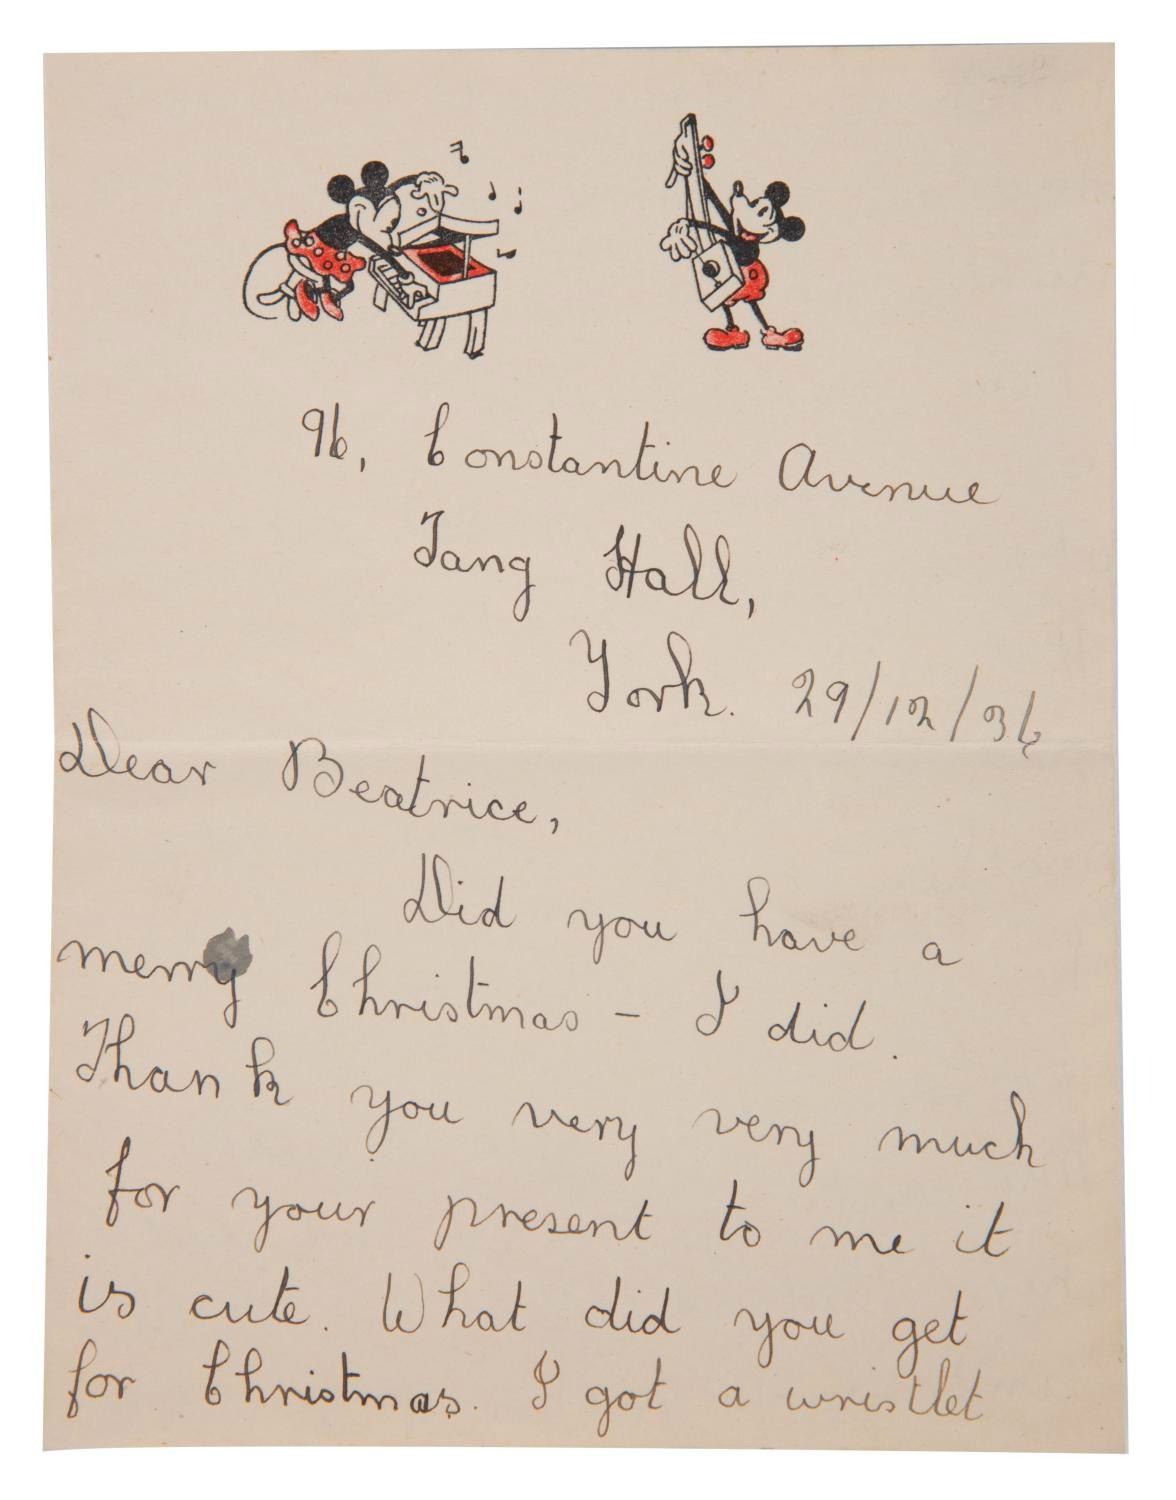 96, Constantine Avenue
Tang Hall,
York. 29/12/36
Dear Beatrice,
Did you have a
merry Christmas - I did.
Thank you very very much
for your present to me it
is cute. What did you get
for Christmas. I got a wristlet